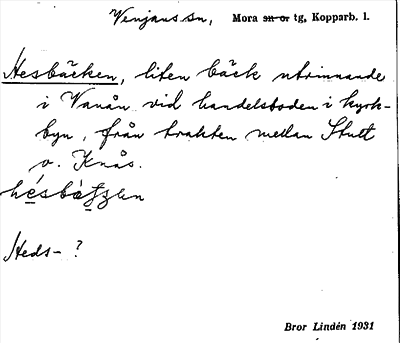 Venjans sn, Mora sn or tg, Kopparb. l.
Hesbäcken, liten bäck utrinnande
i Vanån vid handelsboden i kyrk-
byn, från trakten mellan Stutt
o. Knås.
Heds- ?
Bror Lindén 1931